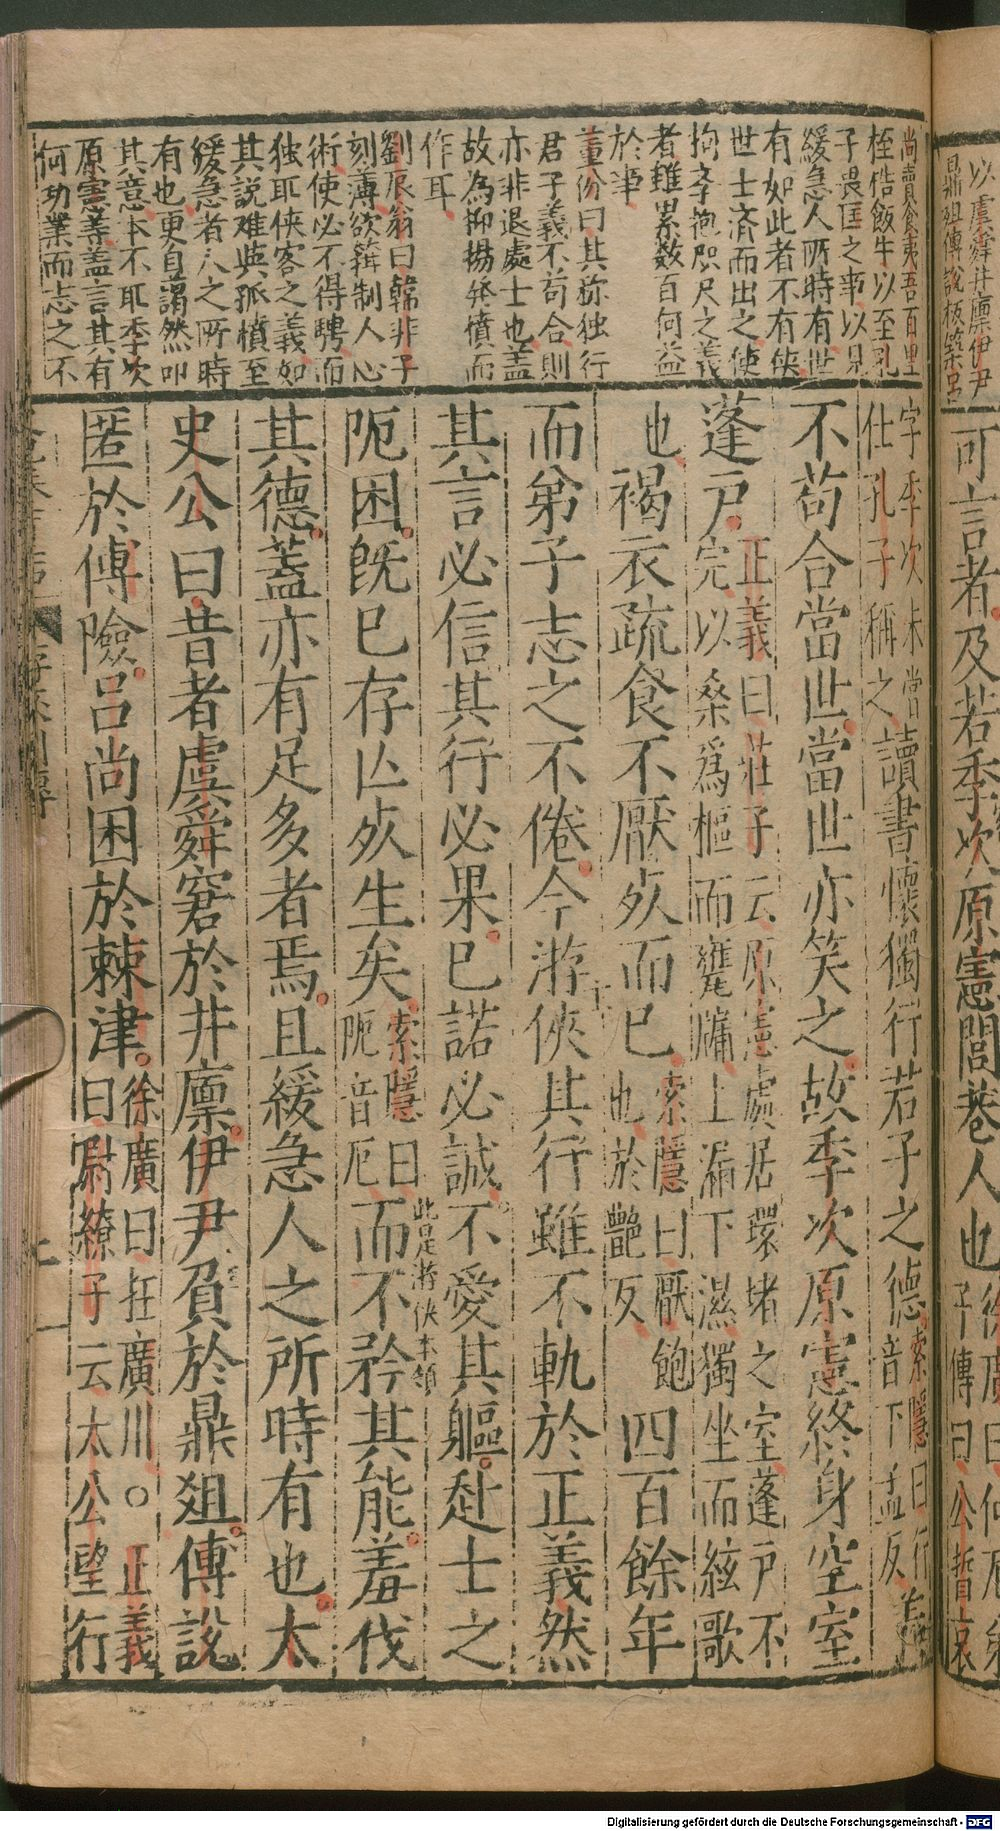 以虞舜井廩伊尹
鼎俎傳說板築呂
可言者及若季次原憲閭巷人也
子傳曰公晳哀
尚賣食夷吾百里
桎梏飯牛以至孔
子畏匡之事以見
緩急人所時有世
有如此者不有俠
世士済而出之使
拘孝抱咫尺之義
者雖累数百何益
於事
董份曰其称独行
君子義不苟合則
亦非退處士也盖
故為抑揚発憤而
作耳
劉辰翁曰韓非子
刻薄欲籍制人心
術使必不得騁而
独取俠客之義如
其説难與孤憤至
緩急者人之所時
有也更自藹然叩
其意本不取季次
原憲等盖言其有
何功業而志之不
字季次未嘗
仕孔子稱之讀書懷獨行君子之德索隱曰行
音下孟反義
不苟合當世當世亦笑之故季次原憲終身空室
蓬戸正義曰莊子云原憲處居環堵之室蓬戸不
完以桑爲樞而甕牖上漏下濕獨坐而絃歌
也褐衣疏食不厭死而已索隱曰厭飽
也於豔反四百餘年
而弟子志之不倦今游俠其行雖不軌於正義然
其言必信其行必果已諾必誠不愛其軀赴士之
此是游俠本領
阨困既已存亡死生矣索隱曰
阨音厄而不矜其能羞伐
其德蓋亦有足多者焉且緩急人之所時有也太
史公曰昔者虞舜窘於井廩伊尹負於鼎俎傅説
匿於傅險吕尚困於棘津徐廣曰在廣川○正義
曰尉繚子云太公望行
Digitalisierung gefördert durch die Deutsche Forschungsgemeinschaft - DFG